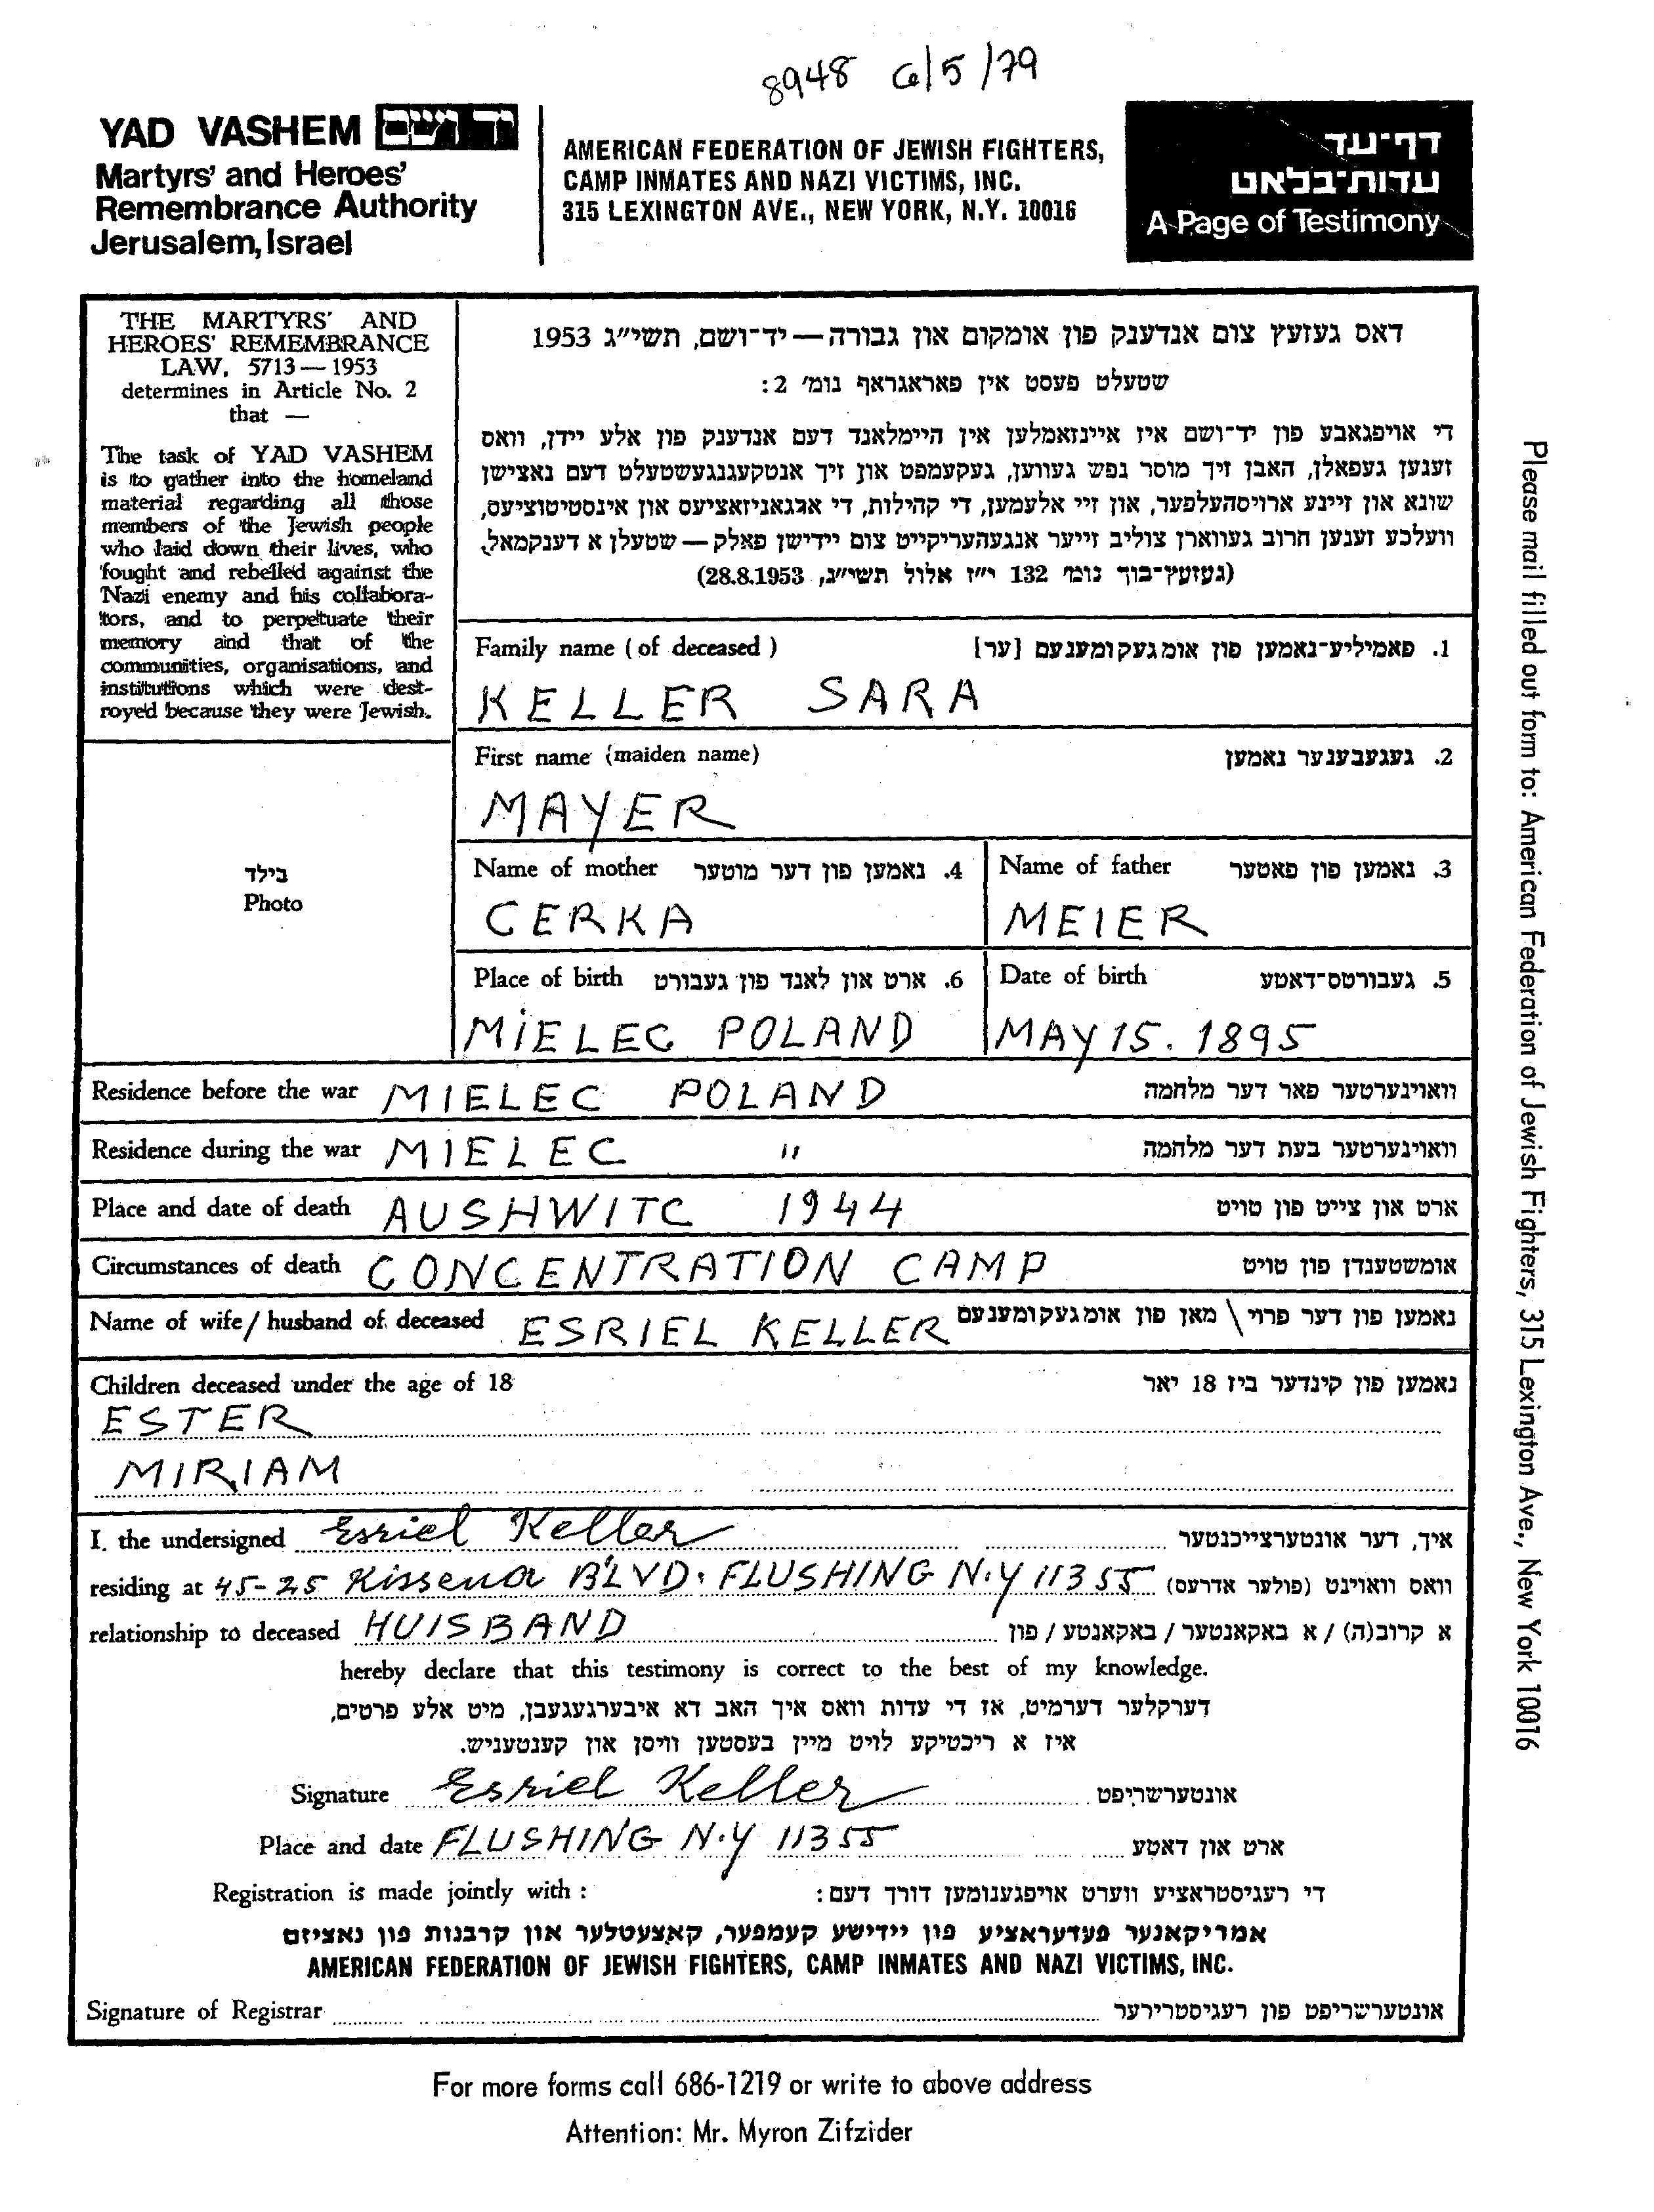 8948 6/5/79
YAD VASHEM יד ושם
Martyrs' and Heroes'
Remembrance Authority
Jerusalem, Israel
AMERICAN FEDERATION OF JEWISH FIGHTERS,
CAMP INMATES AND NAZI VICTIMS, INC.
315 LEXINGTON AVE., NEW YORK, N.Y. 10016
דף־עד
עדות־בלאט
A Page of Testimony
THE MARTYRS' AND
HEROES' REMEMBRANCE
LAW, 5713—1953
determines in Article No. 2
that —
The task of YAD VASHEM
is to gather into the homeland
material regarding all those
members of the Jewish people
who laid down their lives, who
fought and rebelled against the
Nazi enemy and his collabora-
tors, and to perpetuate their
memory and that of the
communities, organisations, and
institutions which were dest-
royed because they were Jewish.
דאס געזעץ צום אנדענק פון אומקום און גבורה—יד־ושם, תשי״ג 1953
שטעלט פעסט אין פאראגראף נומ׳ 2:
די אויפגאבע פון יד־ושם איז איינזאמלען אין היימלאנד דעם אנדענק פון אלע יידן, וואס
זענען געפאלן, האבן זיך מוסר נפש געווען, געקעמפט און זיך אנטקעגנגעשטעלט דעם נאצישן
שונא און זיינע ארויסהעלפער, און זיי אלעמען, די קהילות, די ארגאניזאציעס און אינסטיטוציעס,
וועלכע זענען חרוב געווארן צוליב זייער אנגעהעריקייט צום יידישן פאלק—שטעלן א דענקמאל.
(געזעץ־בוך נומ׳ 132 י״ז אלול תשי״ג, 28.8.1953)
Family name (of deceased) 1. פאמיליע־נאמען פון אומגעקומענעם [ער]
KELLER SARA
First name (maiden name) 2. געגעבענער נאמען
MAYER
Name of mother 4. נאמען פון דער מוטער
CERKA
Name of father 3. נאמען פון פאטער
MEIER
Place of birth 6. ארט און לאנד פון געבורט
MIELEC POLAND
Date of birth 5. געבורטס־דאטע
MAY 15. 1895
בילד
Photo
Residence before the war MIELEC POLAND וואוינערטער פאר דער מלחמה
Residence during the war MIELEC " וואוינערטער בעת דער מלחמה
Place and date of death AUSHWITC 1944 ארט און צייט פון טויט
Circumstances of death CONCENTRATION CAMP אומשטענדן פון טויט
Name of wife / husband of deceased ESRIEL KELLER נאמען פון דער פרוי \ מאן פון אומגעקומענעם
Children deceased under the age of 18 נאמען פון קינדער ביז 18 יאר
ESTER
MIRIAM
I, the undersigned Esriel Keller איך, דער אונטערצייכנטער
residing at 45-25 Kissena BLVD. FLUSHING N.Y 11355 וואס וואוינט (פולער אדרעס)
relationship to deceased HUISBAND א קרוב(ה) / א באקאנטער / באקאנטע / פון
hereby declare that this testimony is correct to the best of my knowledge.
דערקלער דערמיט, אז די עדות וואס איך האב דא איבערגעגעבן, מיט אלע פרטים,
איז א ריכטיקע לויט מיין בעסטען וויסן און קענטעניש.
Signature Esriel Keller אונטערשריפט
Place and date FLUSHING N.Y 11355 ארט און דאטע
Registration is made jointly with : די רעגיסטראציע ווערט אויפגענומען דורך דעם:
אמריקאנער פעדעראציע פון יידישע קעמפער, קאצעטלער און קרבנות פון נאציזם
AMERICAN FEDERATION OF JEWISH FIGHTERS, CAMP INMATES AND NAZI VICTIMS, INC.
Signature of Registrar אונטערשריפט פון רעגיסטרירער
For more forms call 686-1219 or write to above address
Attention: Mr. Myron Zifzider
Please mail filled out form to: American Federation of Jewish Fighters, 315 Lexington Ave., New York 10016